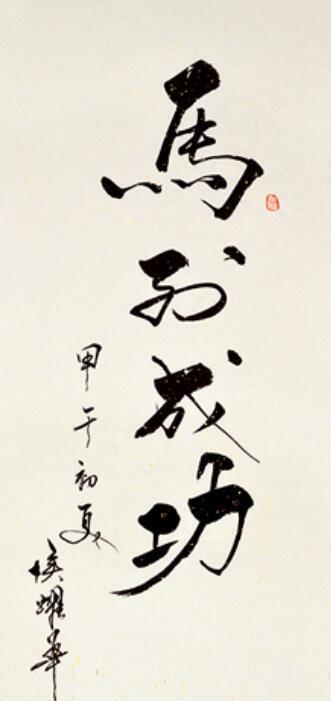 馬到成功
甲午初夏
侯耀華